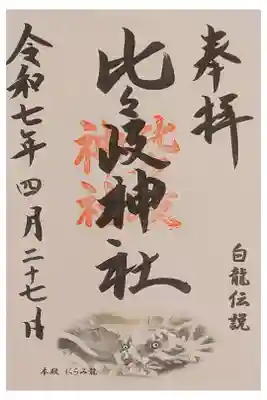 奉拝
白龍伝説
比々岐神社
令和七年四月二十七日
本殿 にらみ龍